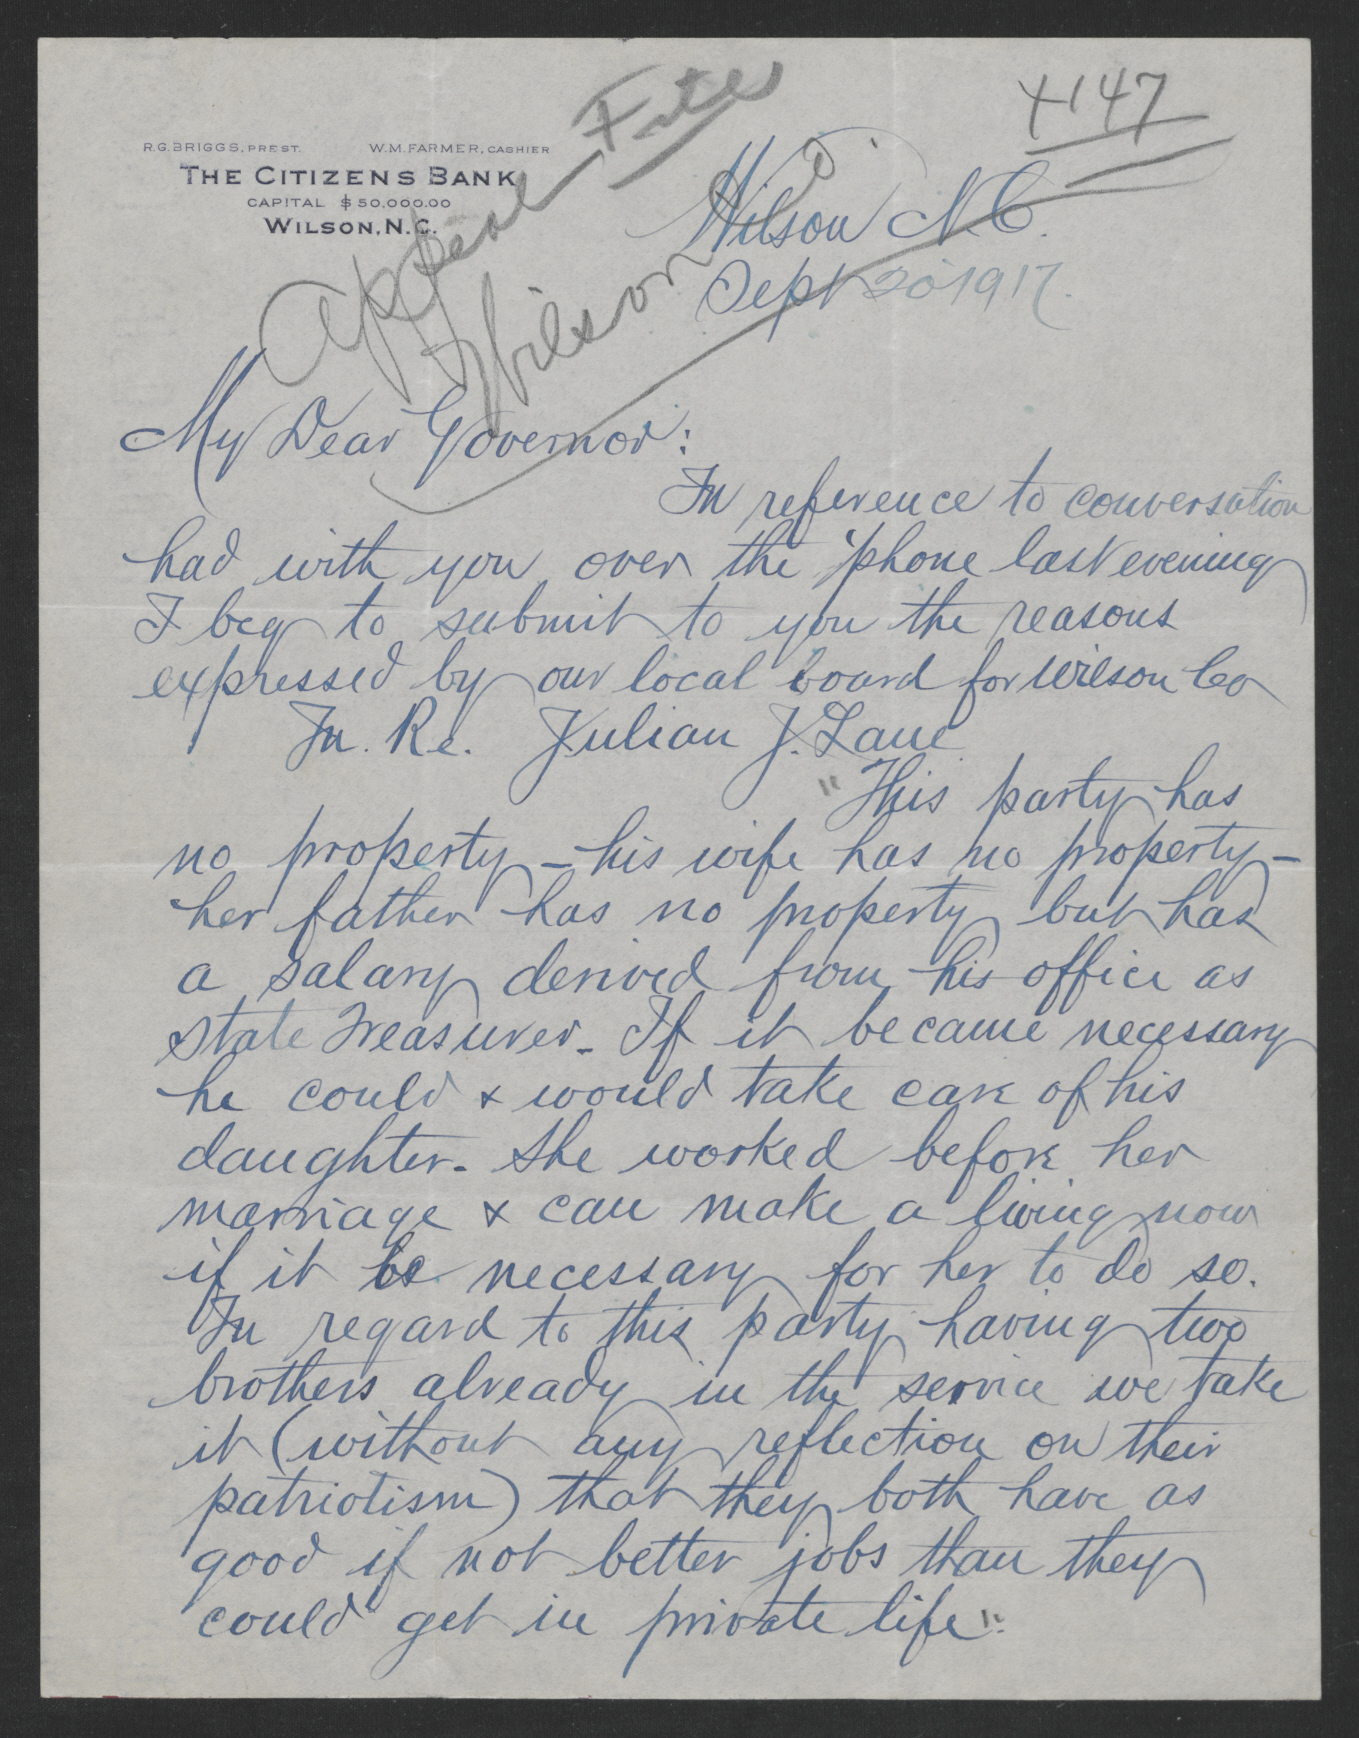 4147
R.G. BRIGGS, PREST. W.M. FARMER, CASHIER
THE CITIZENS BANK
CAPITAL $50,000.00
WILSON, N.C.
Appeal
Wilson
Wilson N.C.
Sept 20 1917.
My Dear Governor:
In reference to conversation
had with you over the 'phone last evening
I beg to submit to you the reasons
expressed by our local board for Wilson Co
In. Re. Julian J. Lane
"This party has
no property – his wife has no property –
her father has no property but has
a salary derived from his office as
State Treasurer. If it became necessary
he could & would take care of his
daughter. She worked before her
marriage & can make a living now
if it be necessary for her to do so.
In regard to this party having two
brothers already in the service we take
it (without any reflection on their
patriotism) that they both have as
good if not better jobs than they
could get in private life".